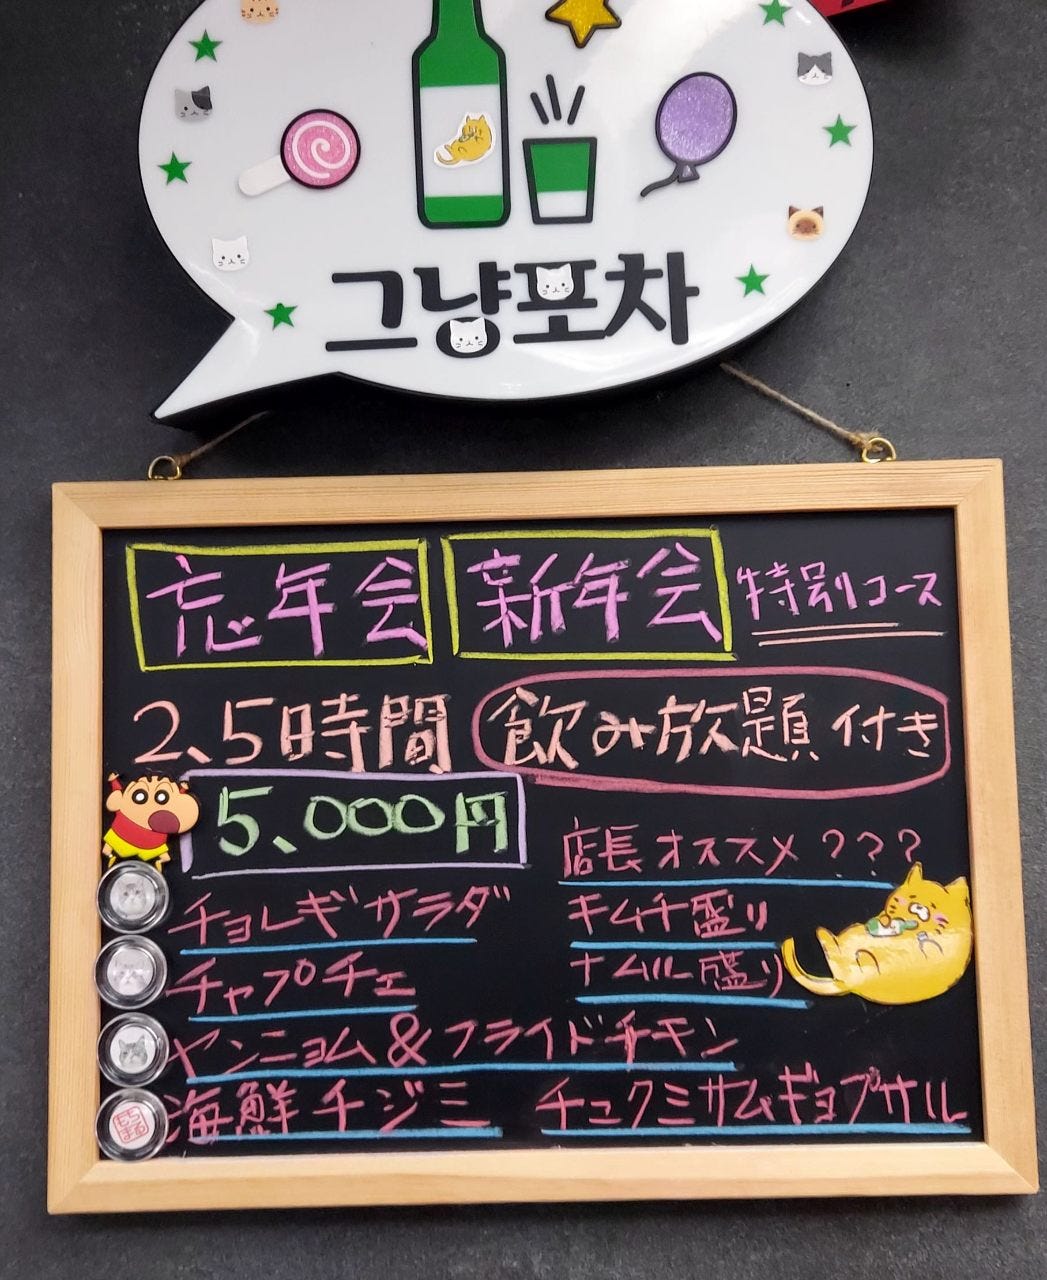 그냥포차
忘年会 新年会 特別コース
2、5時間 飲み放題 付き
5、000円
店長オススメ ???
チョレギサラダ キムチ盛り
チャプチェ ナムル盛り
ヤンニョム&フライドチキン
海鮮チジミ チュクミサムギョプサル